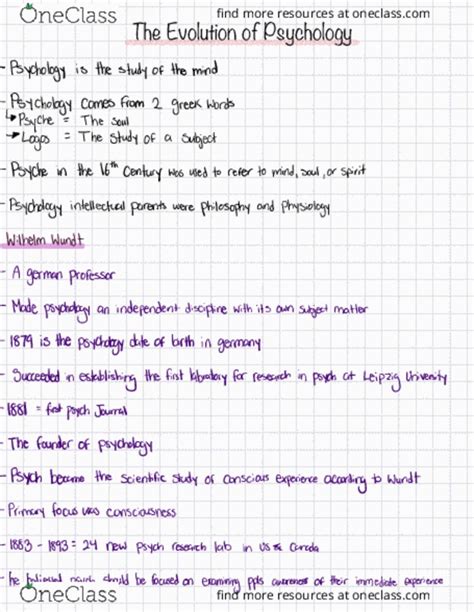 OneClass
find more resources at oneclass.com
The Evolution of Psychology
- Psychology is the study of the mind
- Psychology comes from 2 greek words
↳ Psyche = The soul
→ Logos = The study of a subject
- Psyche in the 16th Century was used to refer to mind, soul, or spirit
- Psychology intellectual parents were philosophy and physiology
Wilhelm Wundt
- A german professor
- Made psychology an independent discipline with its own subject matter
- 1879 is the psychology date of birth in germany
- Succeeded in establishing the first laboratory for research in psych at Leipzig University
- 1881 = first psych Journal
- The founder of psychology
- Psych became the scientific study of conscious experience according to Wundt
- Primary focus was consciousness
- 1883 - 1893 = 24 new psych research lab in US & Canada
- he believed should be focused on examining ppls awareness of their immediate experience
OneClass
find more resources at oneclass.com